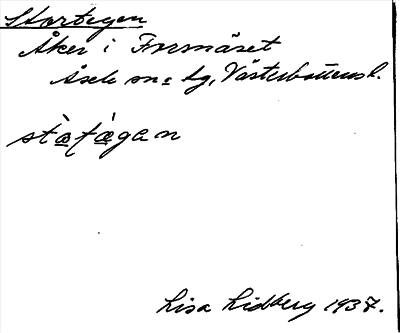 Stortegen
Åker i Formäset
Åsele sn o. lg, Västerbottens l.
Lisa Lidberg 1937.